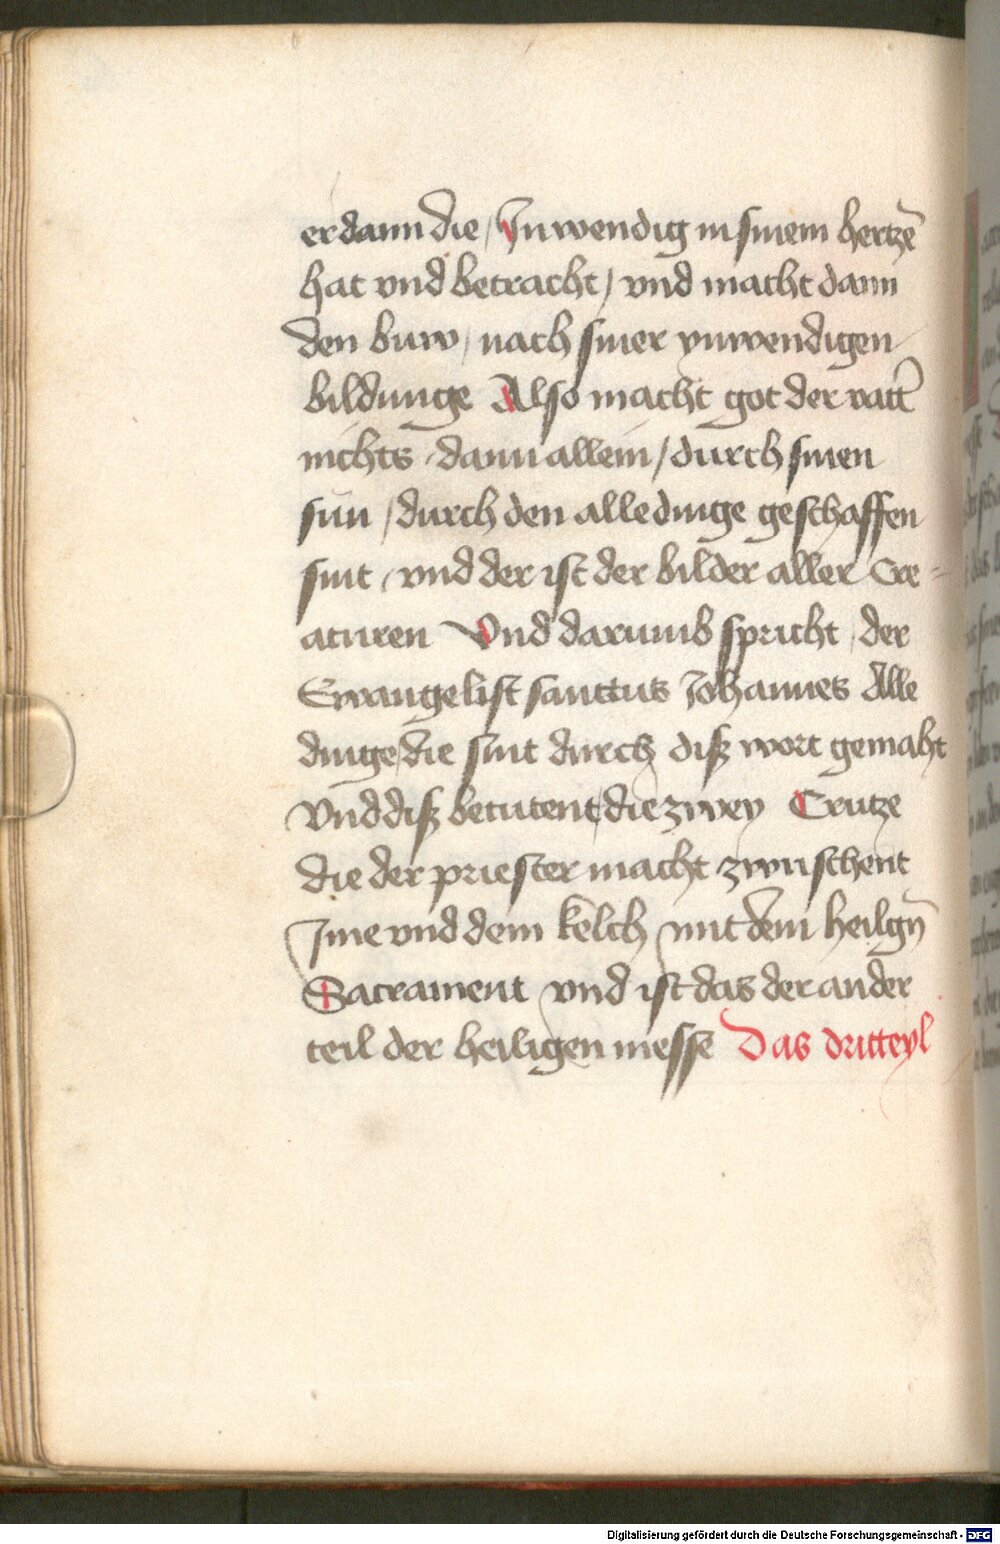 er dann die / Inwendig in sinem hertzē
hat vnd betracht / vnd macht dann
den buw / nach siner ynwendigen
bildunge Also macht got der vatt͛
nichts / dann allein / durch sinen
sún / durch den alle dinge geschaffen
sint / vnd der ist der bilder aller Cre-
aturen Vnd darumb spricht / der
Ewangelist sanctus Johannes Alle
dinge / die sint durch diß wort gemaht
Vnd diß betutent / die zwey Crutze
die der priester macht zwuschent
Jme vnd dem kelch / mit dem heilgn̄
Sacrament vnd ist das der ander
teil der heiligen messe Das dritteyl
Digitalisierung gefördert durch die Deutsche Forschungsgemeinschaft - DFG